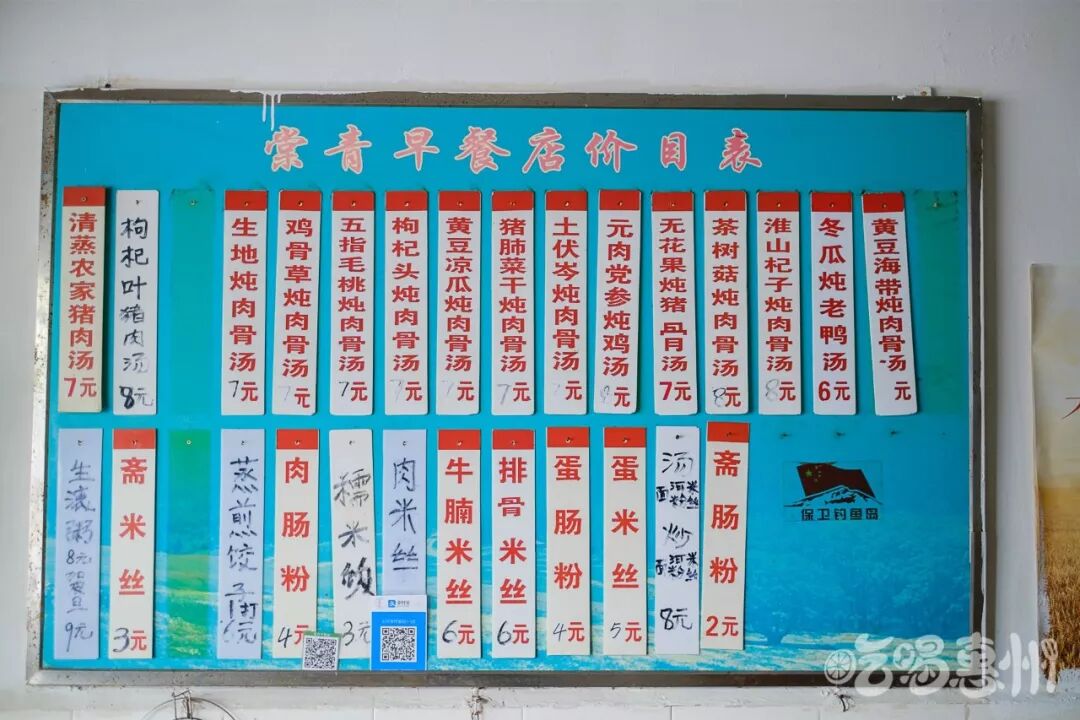 棠青早餐店价目表
清蒸农家猪肉汤 7元
枸杞叶猪肉汤 8元
生地炖肉骨汤 7元
鸡骨草炖肉骨汤 7元
五指毛桃炖肉骨汤 7元
枸杞头炖肉骨汤 7元
黄豆凉瓜炖肉骨汤 7元
猪肺菜干炖肉骨汤 7元
土伏岑炖肉骨汤 元
元肉党参炖鸡汤 元
无花果炖猪骨汤 7元
茶树菇炖肉骨汤 8元
淮山杞子炖肉骨汤 8元
冬瓜炖老鸭汤 6元
黄豆海带炖肉骨汤 元
生滚粥 8元 加旦 9元
斋米丝 3元
蒸煎饺子 1打 6元
肉肠粉 4元
糯米饭 3元
肉米丝
牛腩米丝 6元
排骨米丝 6元
蛋肠粉 4元
蛋米丝 5元
汤面河粉米丝 炒面河粉米丝 8元
斋肠粉 2元
保卫钓鱼岛
吃喝惠州